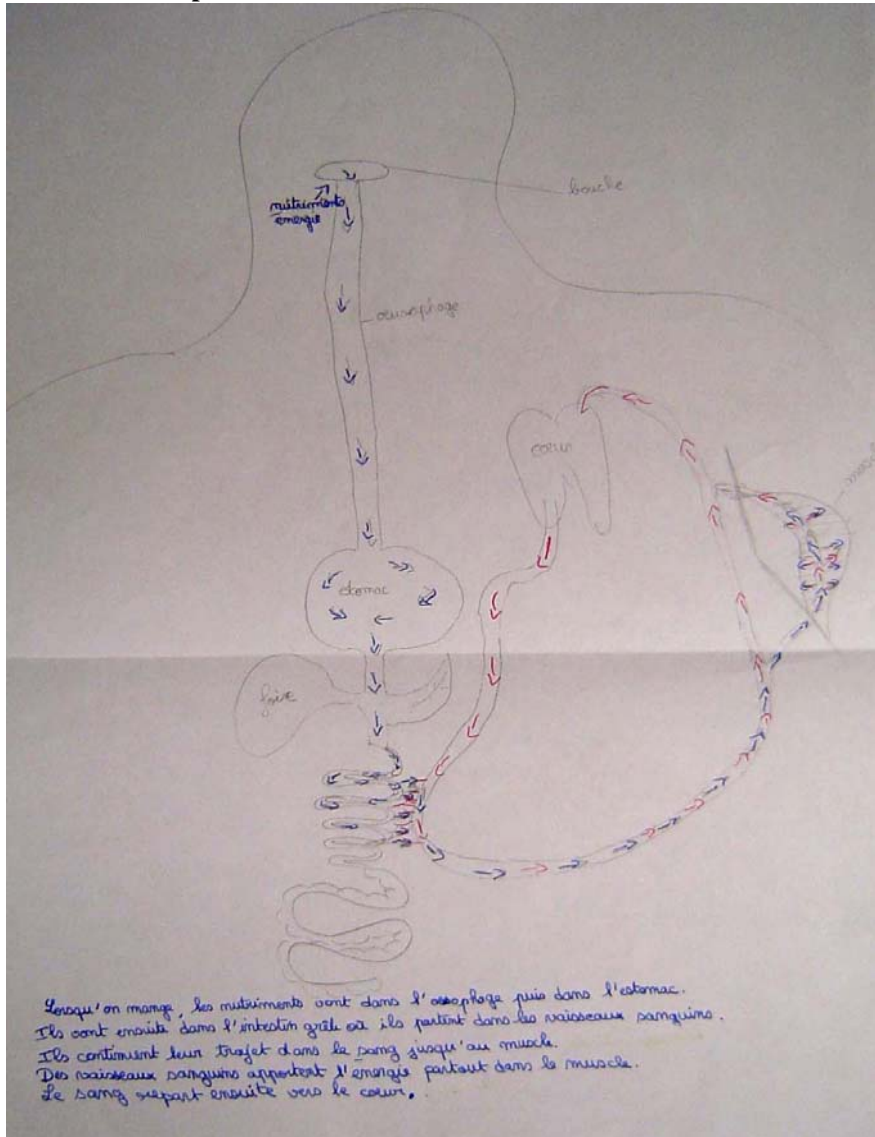 bouche
nutriments
energie
oeusophage
coeur
estomac
foire
Lorsqu'on mange, les nutriments vont dans l'oesophage puis dans l'estomac.
Ils vont ensuite dans l'intestin grêle où ils partent dans les vaisseaux sanguins.
Ils continuent leur trajet dans le sang jusqu'au muscle.
Des vaisseaux sanguins apportent l'energie partout dans le muscle.
Le sang repart ensuite vers le coeur.